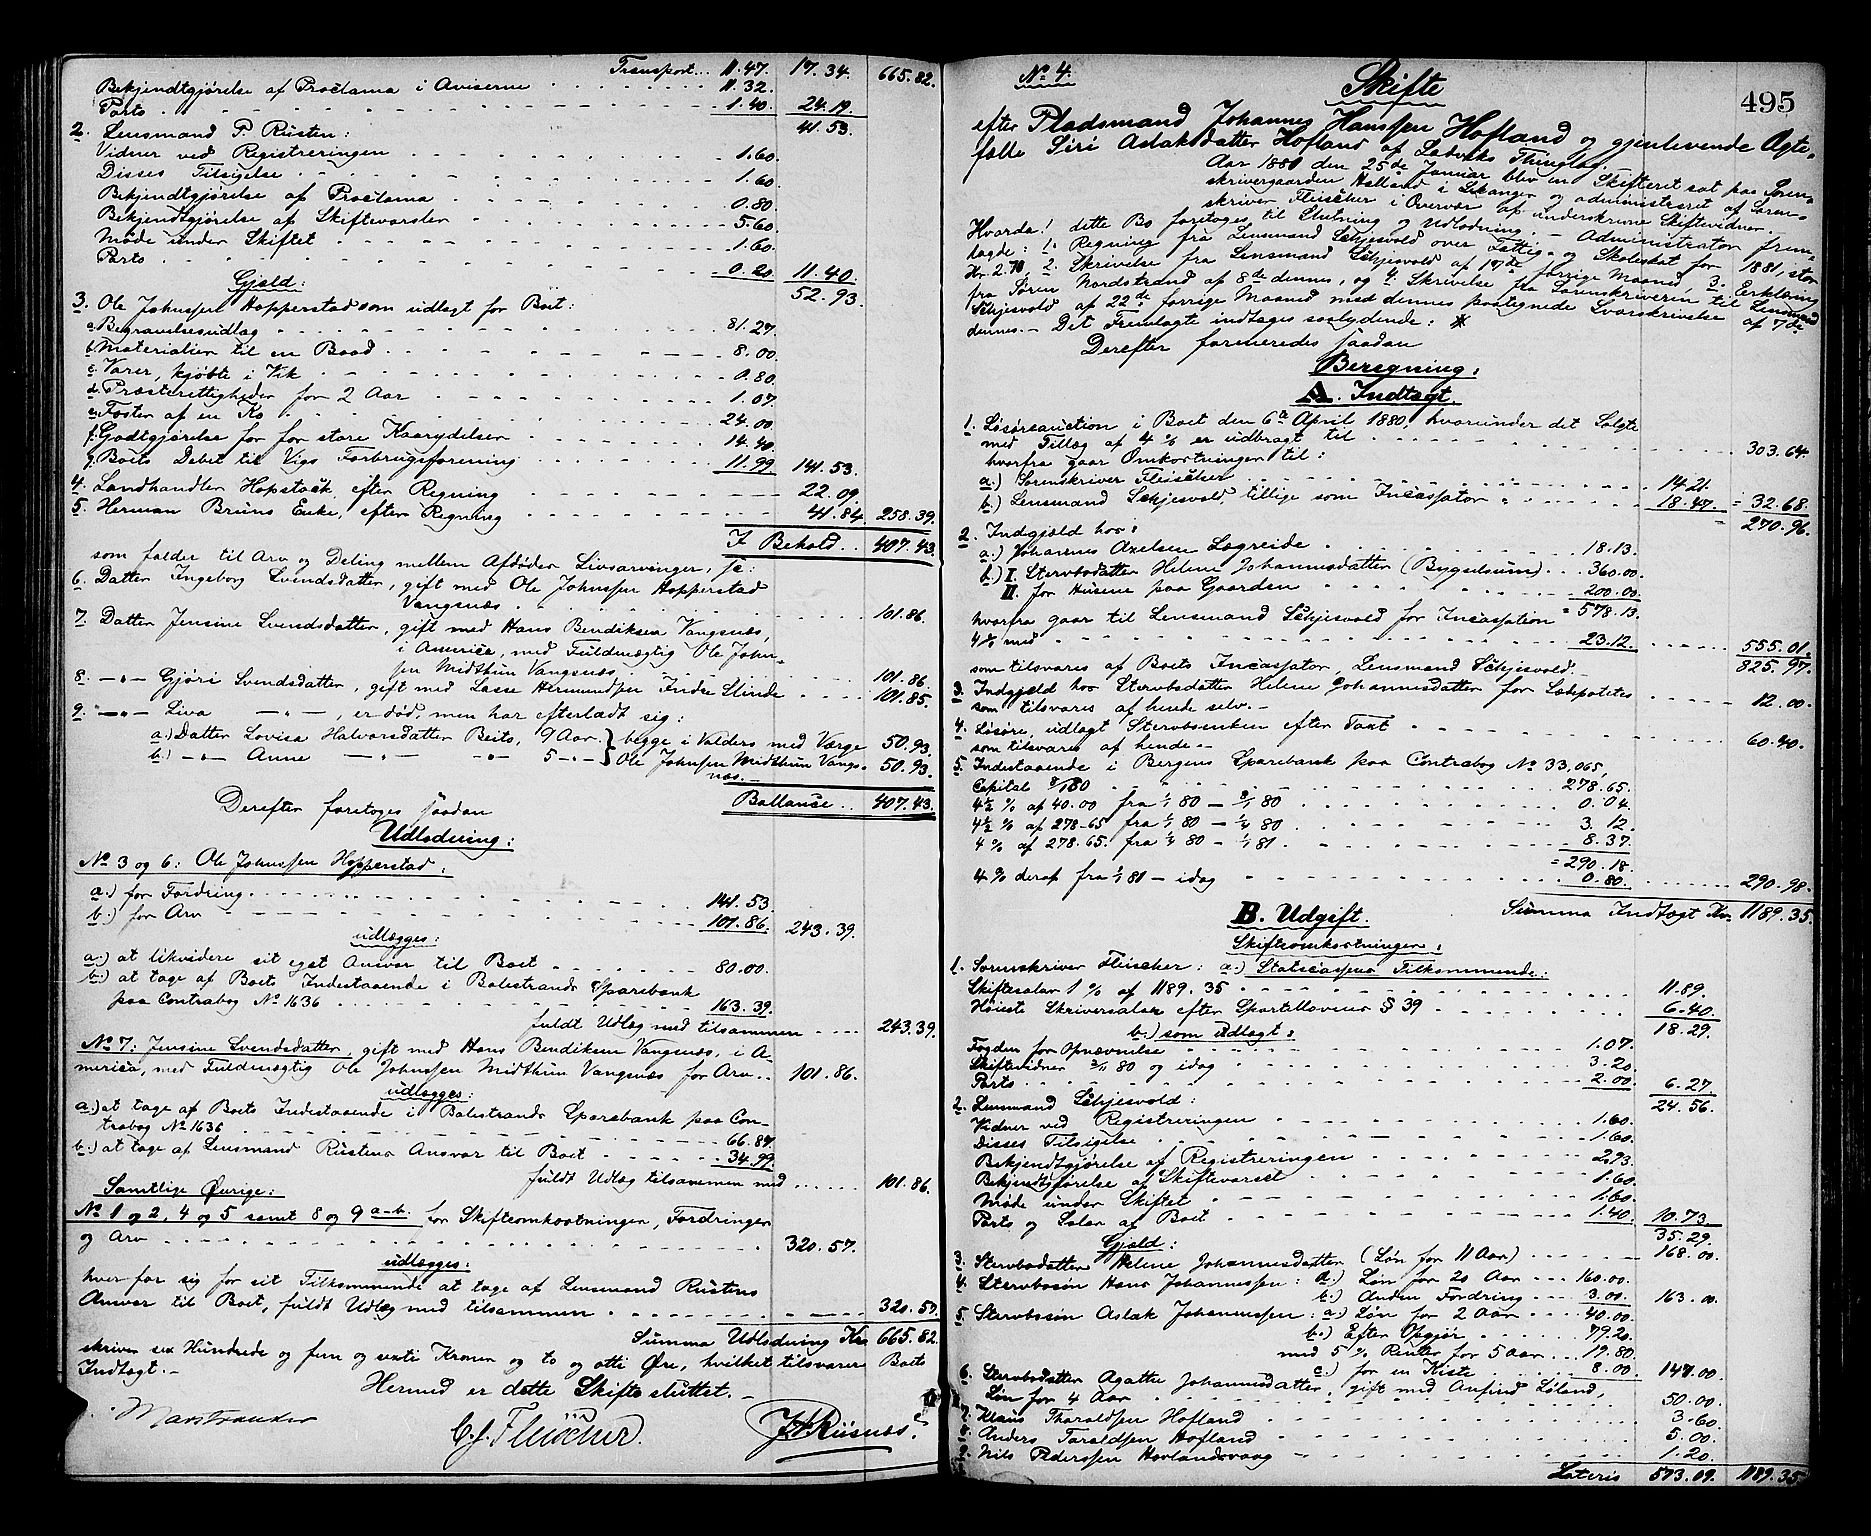 Transport... 11.47. 17.34. 665.82.
Bekjendtgjørelse af Proclama i Aviserne 11.32.
Porto 1.40. 24.19.
2. Lensmand P. Rusten: 41.53.
Vidner ved Registreringen 1.60.
Disses Tilsigelse 1.60.
Bekjendtgjørelse af Proclama 0.80.
Bekjendtgjørelse af Skiftevarsler 5.60.
Møde under Skiftet 1.60.
Porto 0.20. 11.40.
Gjæld: 52.93.
3. Ole Johnssen Hopperstad som udlagt for Boet:
a. Begravelsesudlæg 81.27.
b. Materialier til en Baad 8.00.
c. Varer, kjøbte i Vik 0.80.
d. Præsterettigheder for 2 Aar 1.07.
e. Foster af en Ko 24.00.
f. Godtgjørelse for for store Kaarydelser 14.40.
g. Boets Debet til Vigs Forbrugsforening 11.99 141.53.
4. Landhandler Hopstock, efter Regning 22.09.
5. Herman Bruns Enke, efter Regning 41.84. 258.39.
I Behold.. 407.43.
som falder til Arv og Deling mellem Afdødes Livsarvinger, sc:
6. Datter Ingeborg Svendsdatter, gift med Ole Johnssen Hopperstad
Vangsnæs 101.86.
7. Datter Jensine Svendsdatter, gift med Hans Bendiksen Vangsnæs,
i America, med Fuldmægtig Ole John-
sen Midthun Vangsnæs 101.86.
8. —"— Gjøri Svendsdatter, gift med Lasse Hermundsen Indre Slinde 101.85.
9. —"— Liva —"—, er død, men har efterladt sig:
a.) Datter Lovisa Halvorsdatter Beito, 9 Aar. } begge i Valders med Værge 50.93.
b.) —"— Anne —"— —"— 5 —"— } Ole Johnssen Midthun Vangs- 50.93.
næs.—
Ballance.. 407.43.
Derefter foretoges saadan
Udlodning:
No 3 og 6: Ole Johnssen Hopperstad:
a.) for Fordring 141.53
b.) for Arv 101.86. 243.39.
udlægges:
a.) at likvidere sit eget Ansvar til Boet 80.00.
b.) at tage af Boets Indestaaende i Balestrands Sparebank
paa Contrabog No 1636 163.39.
fuldt Udlæg med tilsammen 243.39.
No 7: Jensine Svendsdatter, gift med Hans Bendiksen Vangsnæs, i A-
merica, med Fuldmægtig Ole Johnssen Midthun Vangsnæs for Arv.. 101.86.
udlægges:
a.) at tage af Boets Indestaaende i Balestrands Sparebank paa Con-
trabog No 1636 66.87.
b.) at tage af Lensmand Rustens Ansvar til Boet 34.99.
fuldt Udlæg tilsammen med 101.86.
Samtlige Øvrige:
No 1 og 2, 4 og 5 samt 8 og 9 a-b. for Skifteomkostninger, Fordringer
og Arv 320.57.
udlægges:
hver for sig for sit Tilkommende at tage af Lensmand Rustens
Ansvar til Boet, fuldt Udlæg med tilsammen 320.57.
Summa Udlodning Kr. 665.82.
skriver sex Hundrede og fem og sexti Kroner og to og otti Øre, hvilket tilsvarer Boets
Indtægt.—
Hermed er dette Skifte sluttet.—
C. J. Fleischer.
No 4. Skifte 495
efter Pladsmand Johannes Hanssen Hofland og gjenlevende Ægte-
fælle Siri Aslaksdatter Hofland af Ladviks Thinglag.
Aar 1881 den 25de Januar blev en Skifteret sat paa Soren-
skrivergaarden Hälland i Lekanger og administreret af Soren-
skriver Fleischer i Overvær af underskrevne Skiftevidner.
Hvorda! dette Bo foretoges til Slutning og Udlodning.— Administrator frem-
lagde: 1. Regning fra Lensmand Schjesvold over Fattig- og Skoleskat for 1881, stor
Kr. 2.70, 2. Skrivelse fra Lensmand Schjesvold af 17de forrige Maaned, 3. Erklæring
fra Søren Nordstrand af 8de dennes, og 4. Skrivelse fra Sorenskriveren til Lensmand
Schjesvold af 22de forrige Maaned med dennes paategnede Svarskrivelse af 7de
dennes.— Det Fremlagte indtages saalydende: *
Derefter formeredes saadan
Beregning:
A. Indtægt.
1. Løsøreauction i Boet den 6te April 1880, hvorunder det Solgte
med Tillæg af 4 % er udbragt til 303.64.
hvorfra gaar Omkostninger til:
a.) Sorenskriver Fleischer 14.21.
b.) Lensmand Schjesvold, tillige som Incassator 18.47. = 32.68.
= 270.96.
2. Indgjæld hos:
a.) Johannes Axelsen Lægreide 18.13.
b.) I. Stervbodatter Helene Johannesdatter (Bygselsum) 360.00.
II. for Husene paa Gaarden 200.00.
= 578.13.
hvorfra gaar til Lensmand Schjesvold for Incassation
4 % med 23.12. 555.01.
som tilsvares af Boets Incassator, Lensmand Schjesvold.— 825.97.
3. Indgjæld hos Stervbodatter Helene Johannesdatter for Sædepotetes
som tilsvares af hende selv.— 12.00.
4. Løsøre, udlagt Stervboenken efter Taxt
som tilsvares af hende.— 60.40.
5. Indestaaende i Bergens Sparebank paa Contrabog No 33,065,
Capital 8/1 80 278.65.
4½ % af 40.00 fra 1/1 80 — 8/1 80 0.04.
4½ % af 278.65 fra 1/1 80 — 1/4 80 3.12.
4 % af 278.65. fra 1/4 80 — 1/1 81 8.37.
= 290.18.
4 % deraf fra 1/1 81 — idag 0.80. 290.98.
Summa Indtægt Kr. 1189.35.
B. Udgift.
Skifteomkostninger:
1. Sorenskriver Fleischer: a.) Statscassens Tilkommende:
Skiftesalær 1 % af 1189.35 11.89.
Høieste Skriversalær efter Sportellovens § 39 6.40.
18.29.
b.) som udlagt:
Fogden for Opnævnelse 1.07.
Skiftevidner 2/11 80 og idag 3.20.
Porto 2.00. 6.27.
24.56.
2. Lensmand Schjesvold:
Vidner ved Registreringen 1.60.
Disses Tilsigelse 1.60.
Bekjendtgjørelse af Registreringen 2.93.
Bekjendtgjørelse af Skiftevarsel 1.60.
Møde under Skiftet 1.60.
Porto og Salær af Boet 1.40. 10.73.
35.29.
Gjæld:
3. Stervbodatter Helene Johannesdatter (Løn for 11 Aar) 168.00.
4. Stervbosøn Hans Johannessen: a.) Løn for 20 Aar 160.00.
b.) Anden Fordring 3.00. 163.00.
5. Stervbosøn Aslak Johannessen: a.) Løn for 2 Aar 40.00.
b.) Efter Opgjør 79.20.
med 5 % Renter for 5 Aar 19.80.
c.) for en Kiste 8.00. 147.00.
6. Stervbodatter Agathe Johannesdatter, gift med Anfind Løland,
Løn for 4 Aar 50.00.
7. Klaus Tharaldsen Hofland 3.60.
8. Anders Taraldsen Hofland 5.00.
9. Nils Pederssen Hovlandsvaag 1.20.
Lateris 573.09. 1189.35.